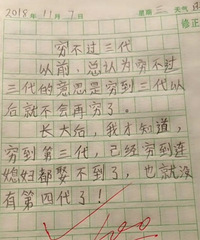 2018年11月7日 星期三 天气
修正
穷不过三代
以前，总认为穷不过
三代的意思是穷到三代以
后就不会再穷了。
长大后，我才知道，
穷到第三代，已经穷到连
媳妇都娶不到了，也就没
有第四代了！
100